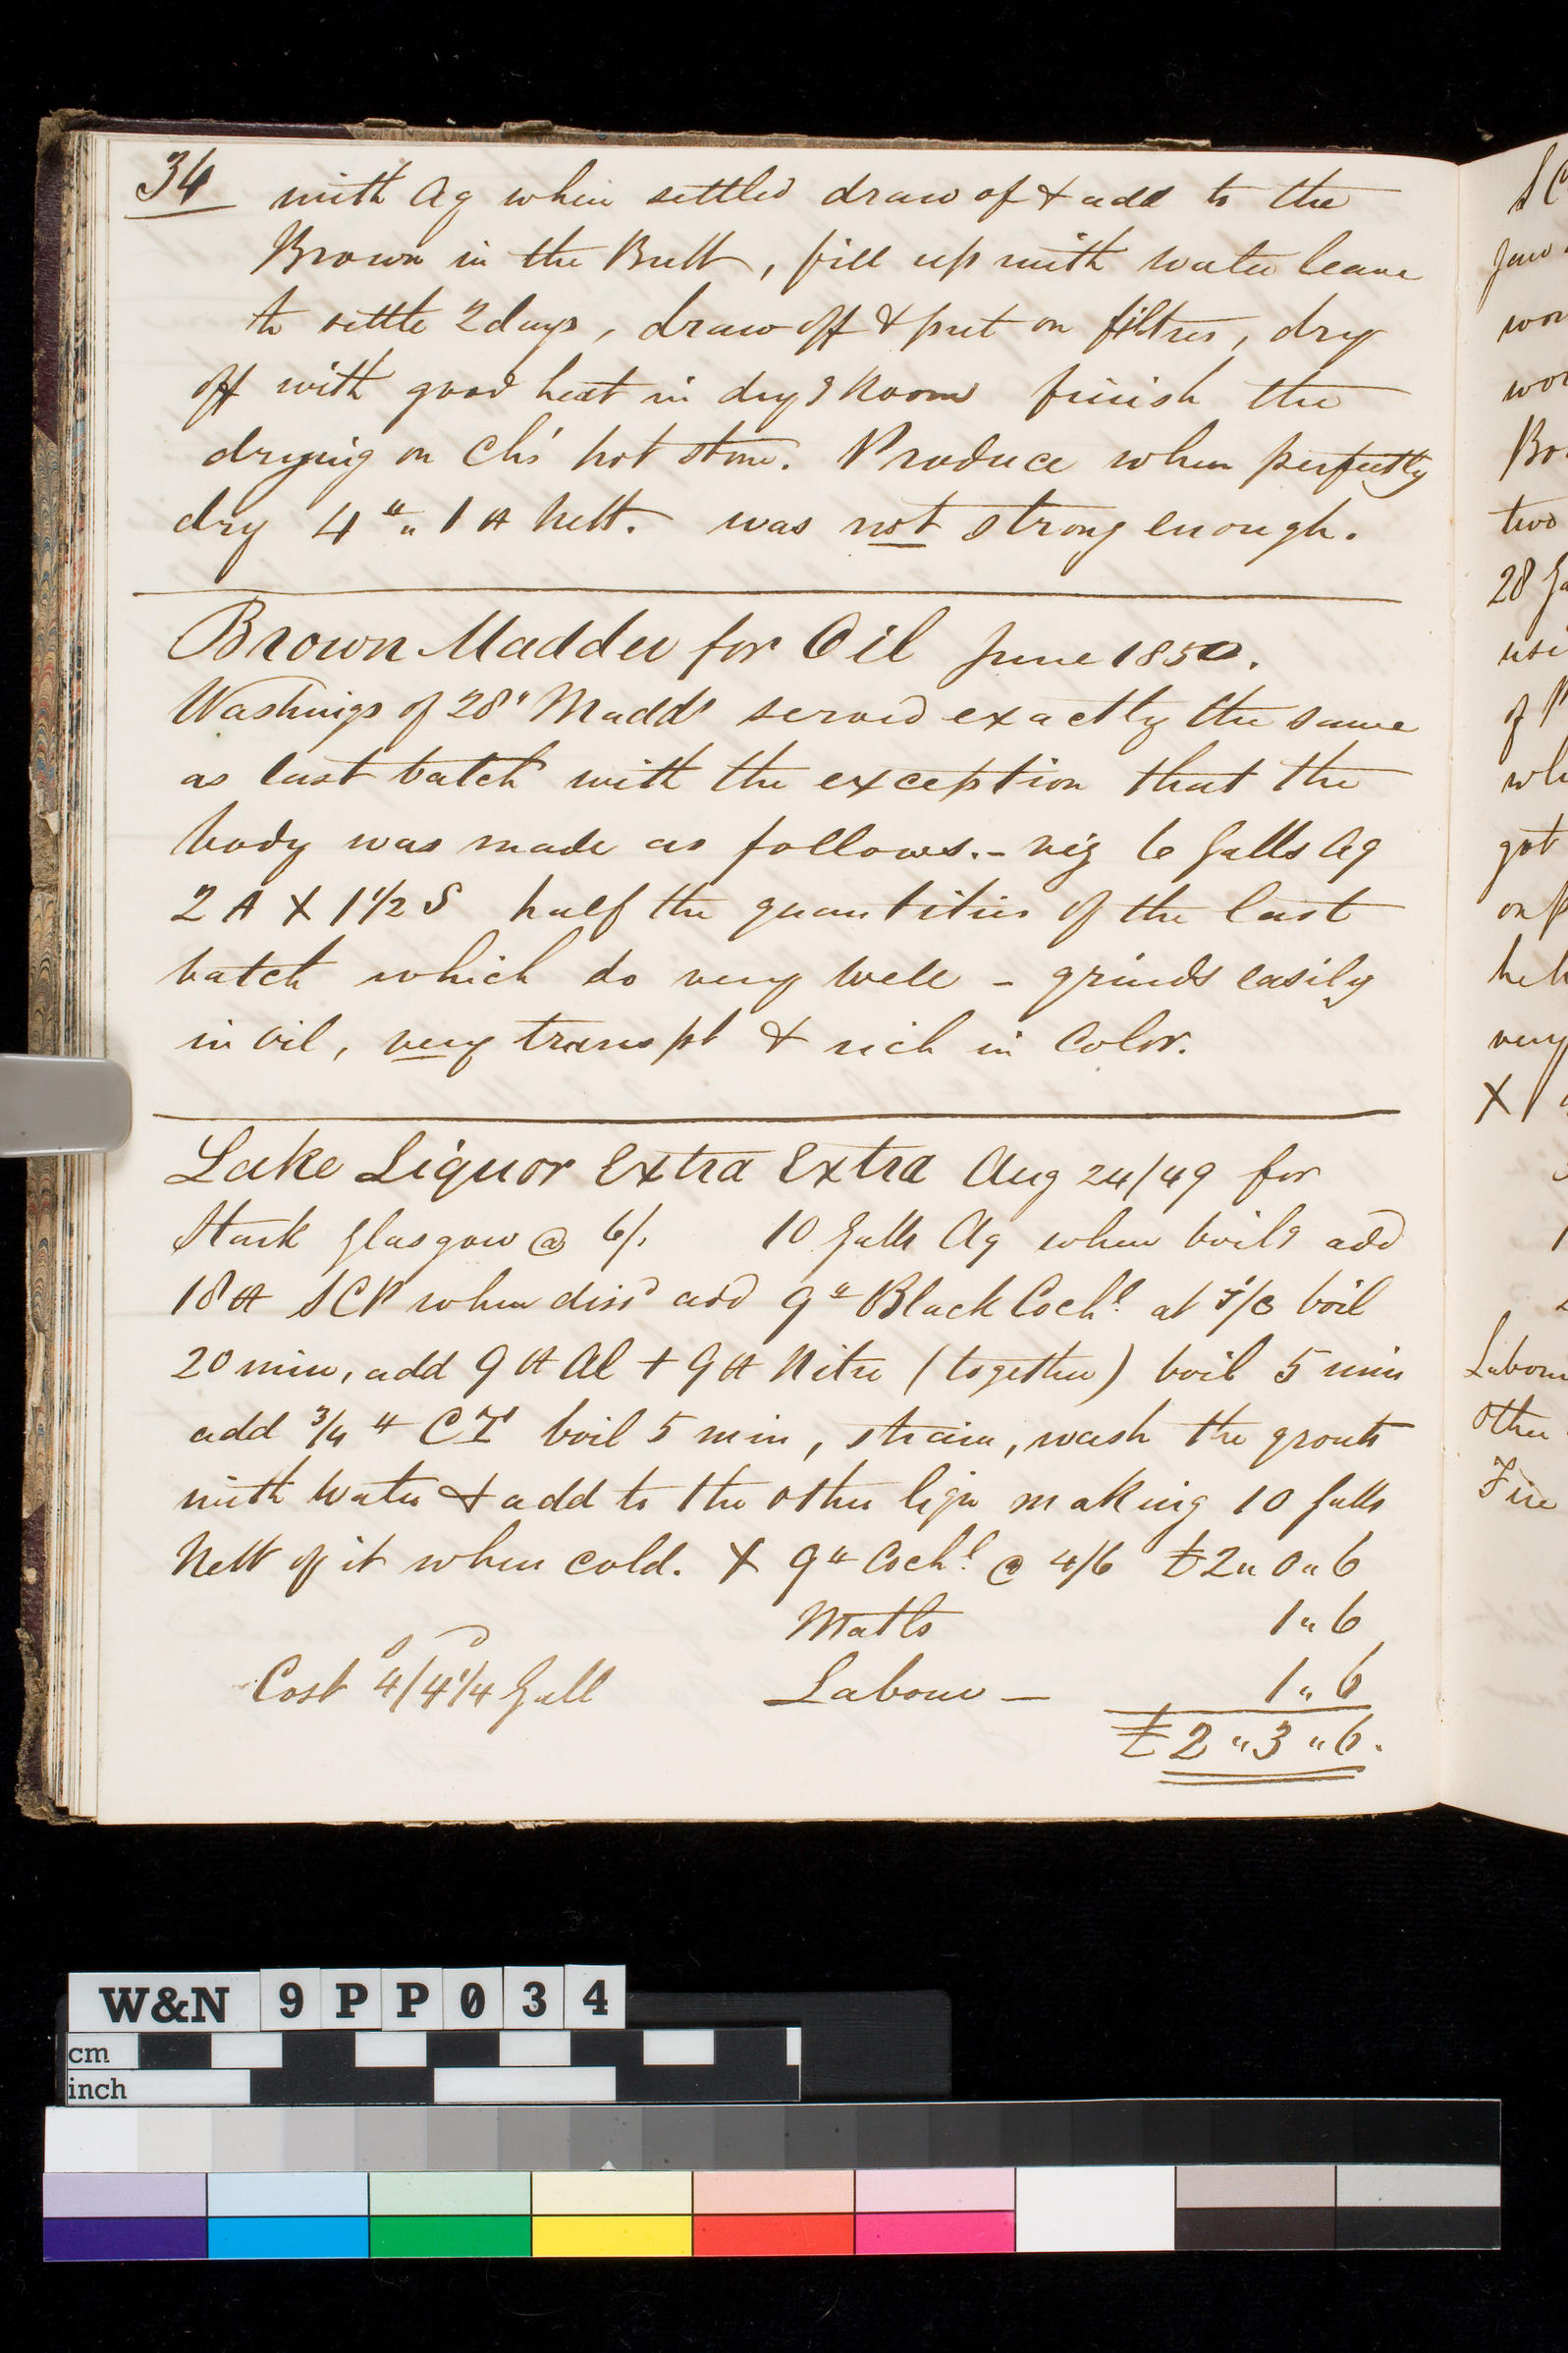 34 with Aq when settled draw of & add to the
Brown in the Butt, fill up with water leave
to settle 2 days, draw off & put on filters, dry
off with good heat in dryg Room finish the
drying on Ch's hot stone. Produce when perfectly
dry 4 " " 1 A Nett. was not strong enough.
Brown Madder for Oil June 1850.
Washings of 28" Madds served exactly the same
as last batch with the exception that the
body was made as follows. - viz 6 Galls Aq
2 A X 1 1/2 S half the quantities of the last
batch which do very well - grinds easily
in Oil, very transpt & rich in Color.
Lake Liquor Extra Extra Aug 24/49 for
Stark Glasgow @ 6/. 10 Galls Aq when boilg add
18 A SCP when dissd add 9 " Black Cochl at boil
20 min, add 9 A Al + 9 A Nitre (together) boil 5 min
add 3/4 " CT boil 5 min, strain, wash the grouts
with water & add to the other liqr making 10 Galls
Nett of it when cold. X 9 " Cochl @ 4/6 £2 " 0 " 6
Matls 1 " 6
Cost 4/4 1/4 Gall Labour — 1 " 6
£2 " 3 " 6.
Jun
wor
wor
two
28 Ga
usi
of
wh
got
on
very
X
Labour
Other
Fire
W&N 9PP034
cm
inch